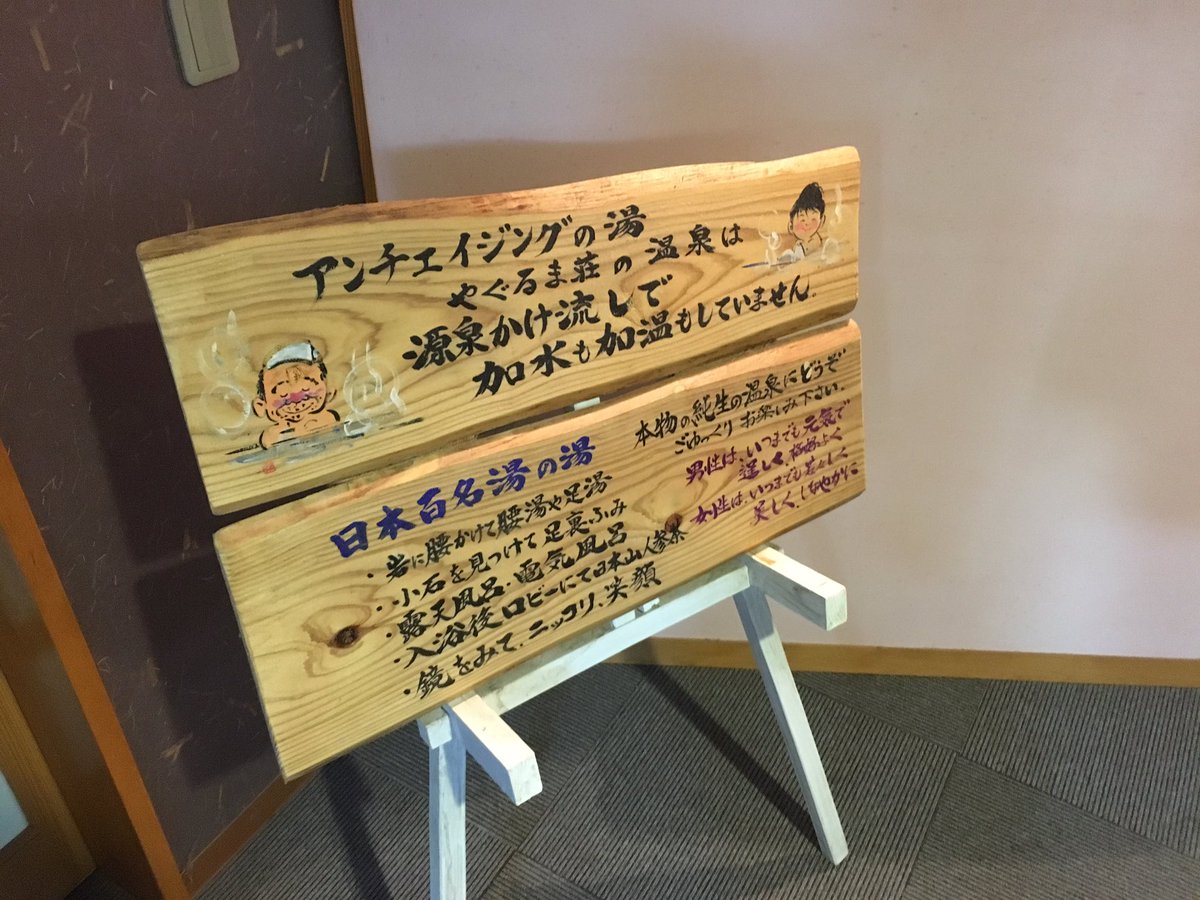 アンチエイジングの湯
やぐるま荘の温泉は
源泉かけ流しで
加水も加温もしていません。
本物の純生の温泉にどうぞ
ごゆっくりお楽しみ下さい。
男性は、いつまでも元気で
逞しく、格好よく
女性は、いつまでも若々しく
美しく、しなやかに
日本百名湯の湯
・岩に腰かけて腰湯や足湯
・小石を見つけて足裏ふみ
・露天風呂・電気風呂
・入浴後ロビーにて日本山人参茶
・鏡をみて、ニッコリ、笑顔